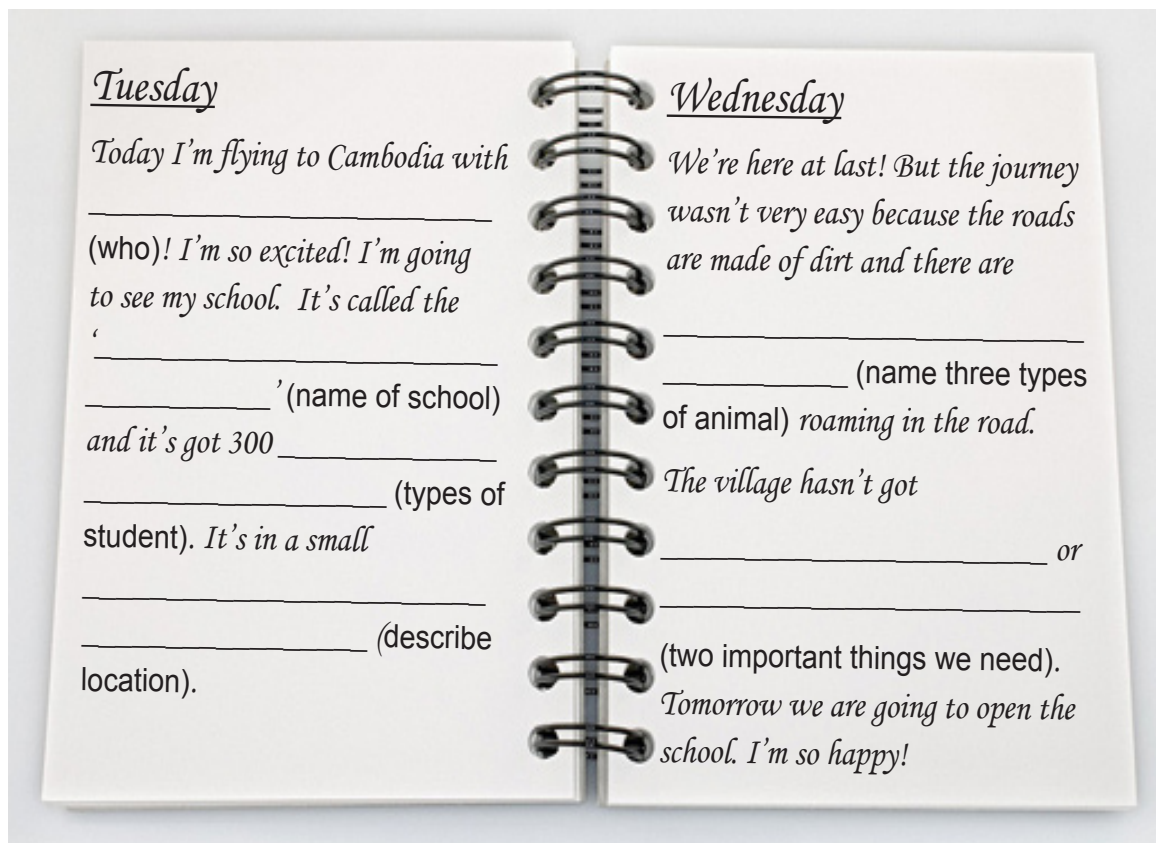 Tuesday
Today I'm flying to Cambodia with
____________________________
(who)! I'm so excited! I'm going
to see my school. It's called the
‘____________________________
_____________’ (name of school)
and it's got 300 _______________
_____________________ (types of
student). It's in a small
____________________________
____________________ (describe
location).
Wednesday
We're here at last! But the journey
wasn't very easy because the roads
are made of dirt and there are
_____________________________
_____________ (name three types
of animal) roaming in the road.
The village hasn't got
___________________________ or
_____________________________
(two important things we need).
Tomorrow we are going to open the
school. I'm so happy!